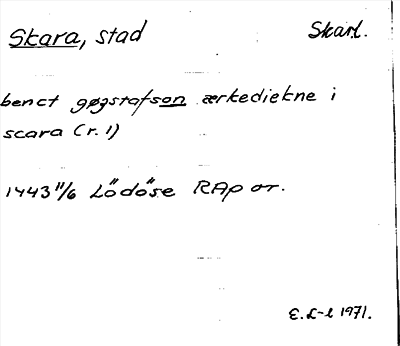 Skara, stad Skarl.
benct gøzstafson ærkediekne i
scara (r. 1)
1443 11/6 Lödöse RAp or.
E. L-l 1971.